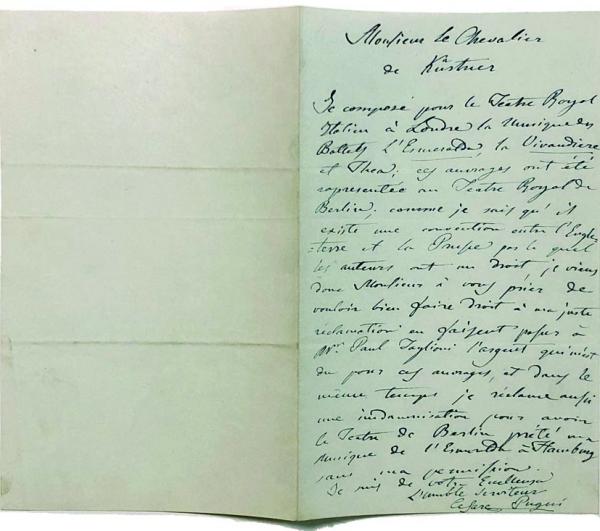 Monsieur le Chevalier
de Küstner
Je composé pour le Teatre Royal
Italien à Londre la Musique des
Ballets L'Esmeralda, la Vivandiere
et Thea; ces ouvrages ont été
representée au Teatre Royal de
Berlin; comme je sais qu'il
existe une convention entre l'Engle-
=terre et la Prusse par le quel
les auteurs ont un droit, je viens
donc Monsieur à vous prier de
vouloir bien faire droit à ma juste
réclamation en faisent passer à
Mr. Paul Taglioni l'argent qui m'est
du pour ces ouvrages, et dans le
même temps je réclame aussi
une indamnisation pour avoir
le Teatre de Berlin prété ma
musique de l'Esmeralda à Hambourg
sans ma permission.
Je suis de votre Excellence
L'umble Serviteur
Cesare Pugni